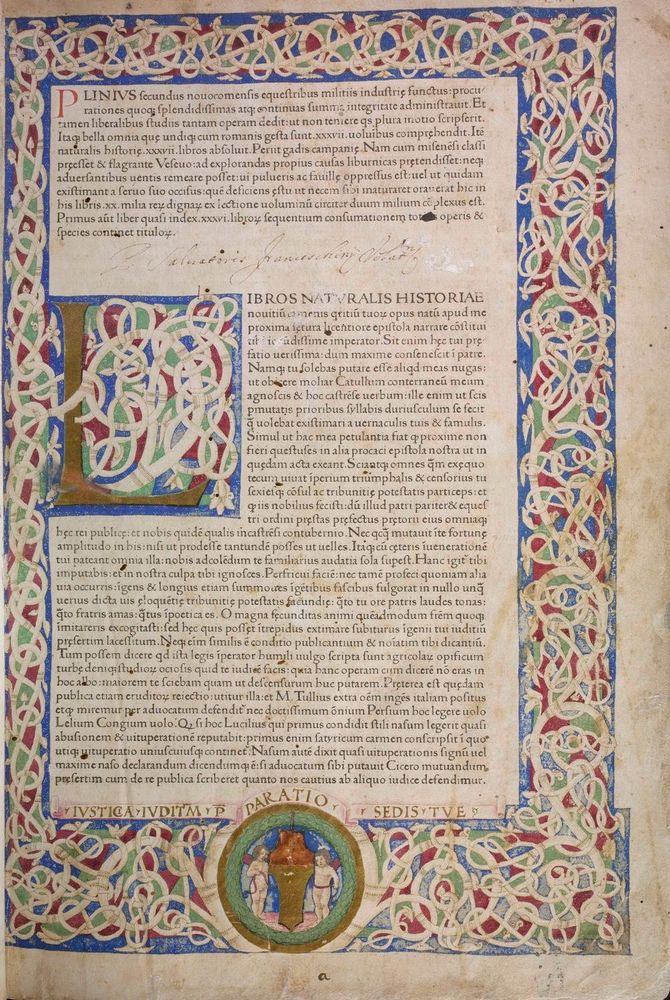 PLINIVS secundus nouocomensis equestribus militiis industrię functus: procu/
rationes quoqꝫ splendidissimas atqꝫ continuas summa integritate administrauit. Et
tamen liberalibus studiis tantam operam dedit: ut non temere qs plura in otio scripserit.
Itaqꝫ bella omnia quę undiqꝫ cum romanis gesta sunt .xxxvii. uoluībus comprehendit. Itē
naturalis historię .xxxvii. libros absoluit. Periit gadis campanię. Nam cum misenēsi classi
pręesset & flagrante Veseuo: ad explorandas propius causas liburnicas prętendisset: neqꝫ
aduersantibus uentis remeare posset: ui pulueris ac fauillę oppressus est: uel ut quidam
existimant a seruo suo occisus: quē deficiens ęstu ut necem sibi maturaret orauerat hic in
his libris .xx. milia reꝝ dignaꝝ ex lectione uoluminū circiter duum milium cōplexus est.
Primus aūt liber quasi index .xxxvi. libroꝝ sequentium consumationem totius operis &
species continet tituloꝝ.
Saluatoris Franceschinj
LIBROS NATVRALIS HISTORIAE
nouitiū camenis qritiū tuoꝝ opus natū apud me
proxima fętura licentiore epistola narrare cōstitui
tibi iocūdissime imperator. Sit enim hęc tui pręfatio uerissima: dum maxime consenescit ī patre.
Namqꝫ tu solebas putare esse aliqd meas nugas:
ut obiicere moliar Catullum conterraneū meum
agnoscis & hoc castrēse uerbum: ille enim ut scis
pmutatis prioribus syllabis duriusculum se fecit
q̄ uolebat existimari a uernaculis tuis & famulis.
Simul ut hac mea petulantia fiat qꝫ proxime non
fieri questus es in alia procaci epistola nostra ut in
quędam acta exeant. Sciantqꝫ omnes q̄m ex ęquo
tecum uiuat īperium triumphalis & censorius tu
sexiesqꝫ cōsul ac tribunitię potestatis particeps: et
q iis nobilius fecisti: dū illud patri pariter & eques
tri ordini pręstas pręfectus pretorii eius omniaqꝫ
hęc rei publicę: et nobis quidē qualis in castrēsi contubernio. Nec qcq̄ mutauit ī te fortunę
amplitudo in his: nisi ut prodesse tantundē posses ut uelles. Itaqꝫ cū cęteris ī uenerationē
tui pateant omnia illa: nobis ad colēdum te familiarius audatia sola supest. Hanc igit tibi
imputabis: et in nostra culpa tibi ignosces. Perfricui faciē: nec tamē profeci quoniam alia
uia occurris: īgens & longius etiam summoues īgētibus fascibus fulgorat in nullo unq̄
uerius dicta uis eloquētię tribunitię potestatis facundię: q̄to tu ore patris laudes tonas:
q̄to fratris amas: q̄tus ī poetica es. O magna fęcunditas animi quēadmodum frēm quoqꝫ
imitareris excogitasti: sed hęc quis posset ītrepidus extimare subiturus īgenii tui iuditiū
pręsertim lacessitum. Neqꝫ eīm similis ē conditio publicantium & noīatim tibi dicantiū.
Tum possem dicere qd ista legis īperator humili uulgo scripta sunt agricolaꝝ opificum
turbę deniqꝫ studioꝝ ociosis quid te iudicē facis: quia hanc operam cum dicerē nō eras in
hoc albo: maiorem te sciebam quam ut descensurum huc putarem. Pręterea est quędam
publica etiam eruditoꝝ reiectio: utitur illa: et M. Tullius extra oēm īngēs italiam positus
et qꝫ miremur per aduocatum defendit nec doctissimum ōnium Persium hoc legere uolo
Lelium Congium uolo. Qꝫ si hoc Lucilius qui primus condidit stili nasum legerit quasi
abusionem & uituperationē reputabit: primus enim satyricum carmen conscripsit ī quo
utiqꝫ uituperatio uniuscuiusqꝫ continet. Nasum autē dixit quasi uituperationis signū uel
maxime naso declarandum dicendumqꝫ ē: si aduocatum sibi putauit Cicero mutuandum
pręsertim cum de re publica scriberet quanto nos cautius ab aliquo iudice defendimur.
IVSTICA IVDITM P PARATIO SEDIS TVE
a